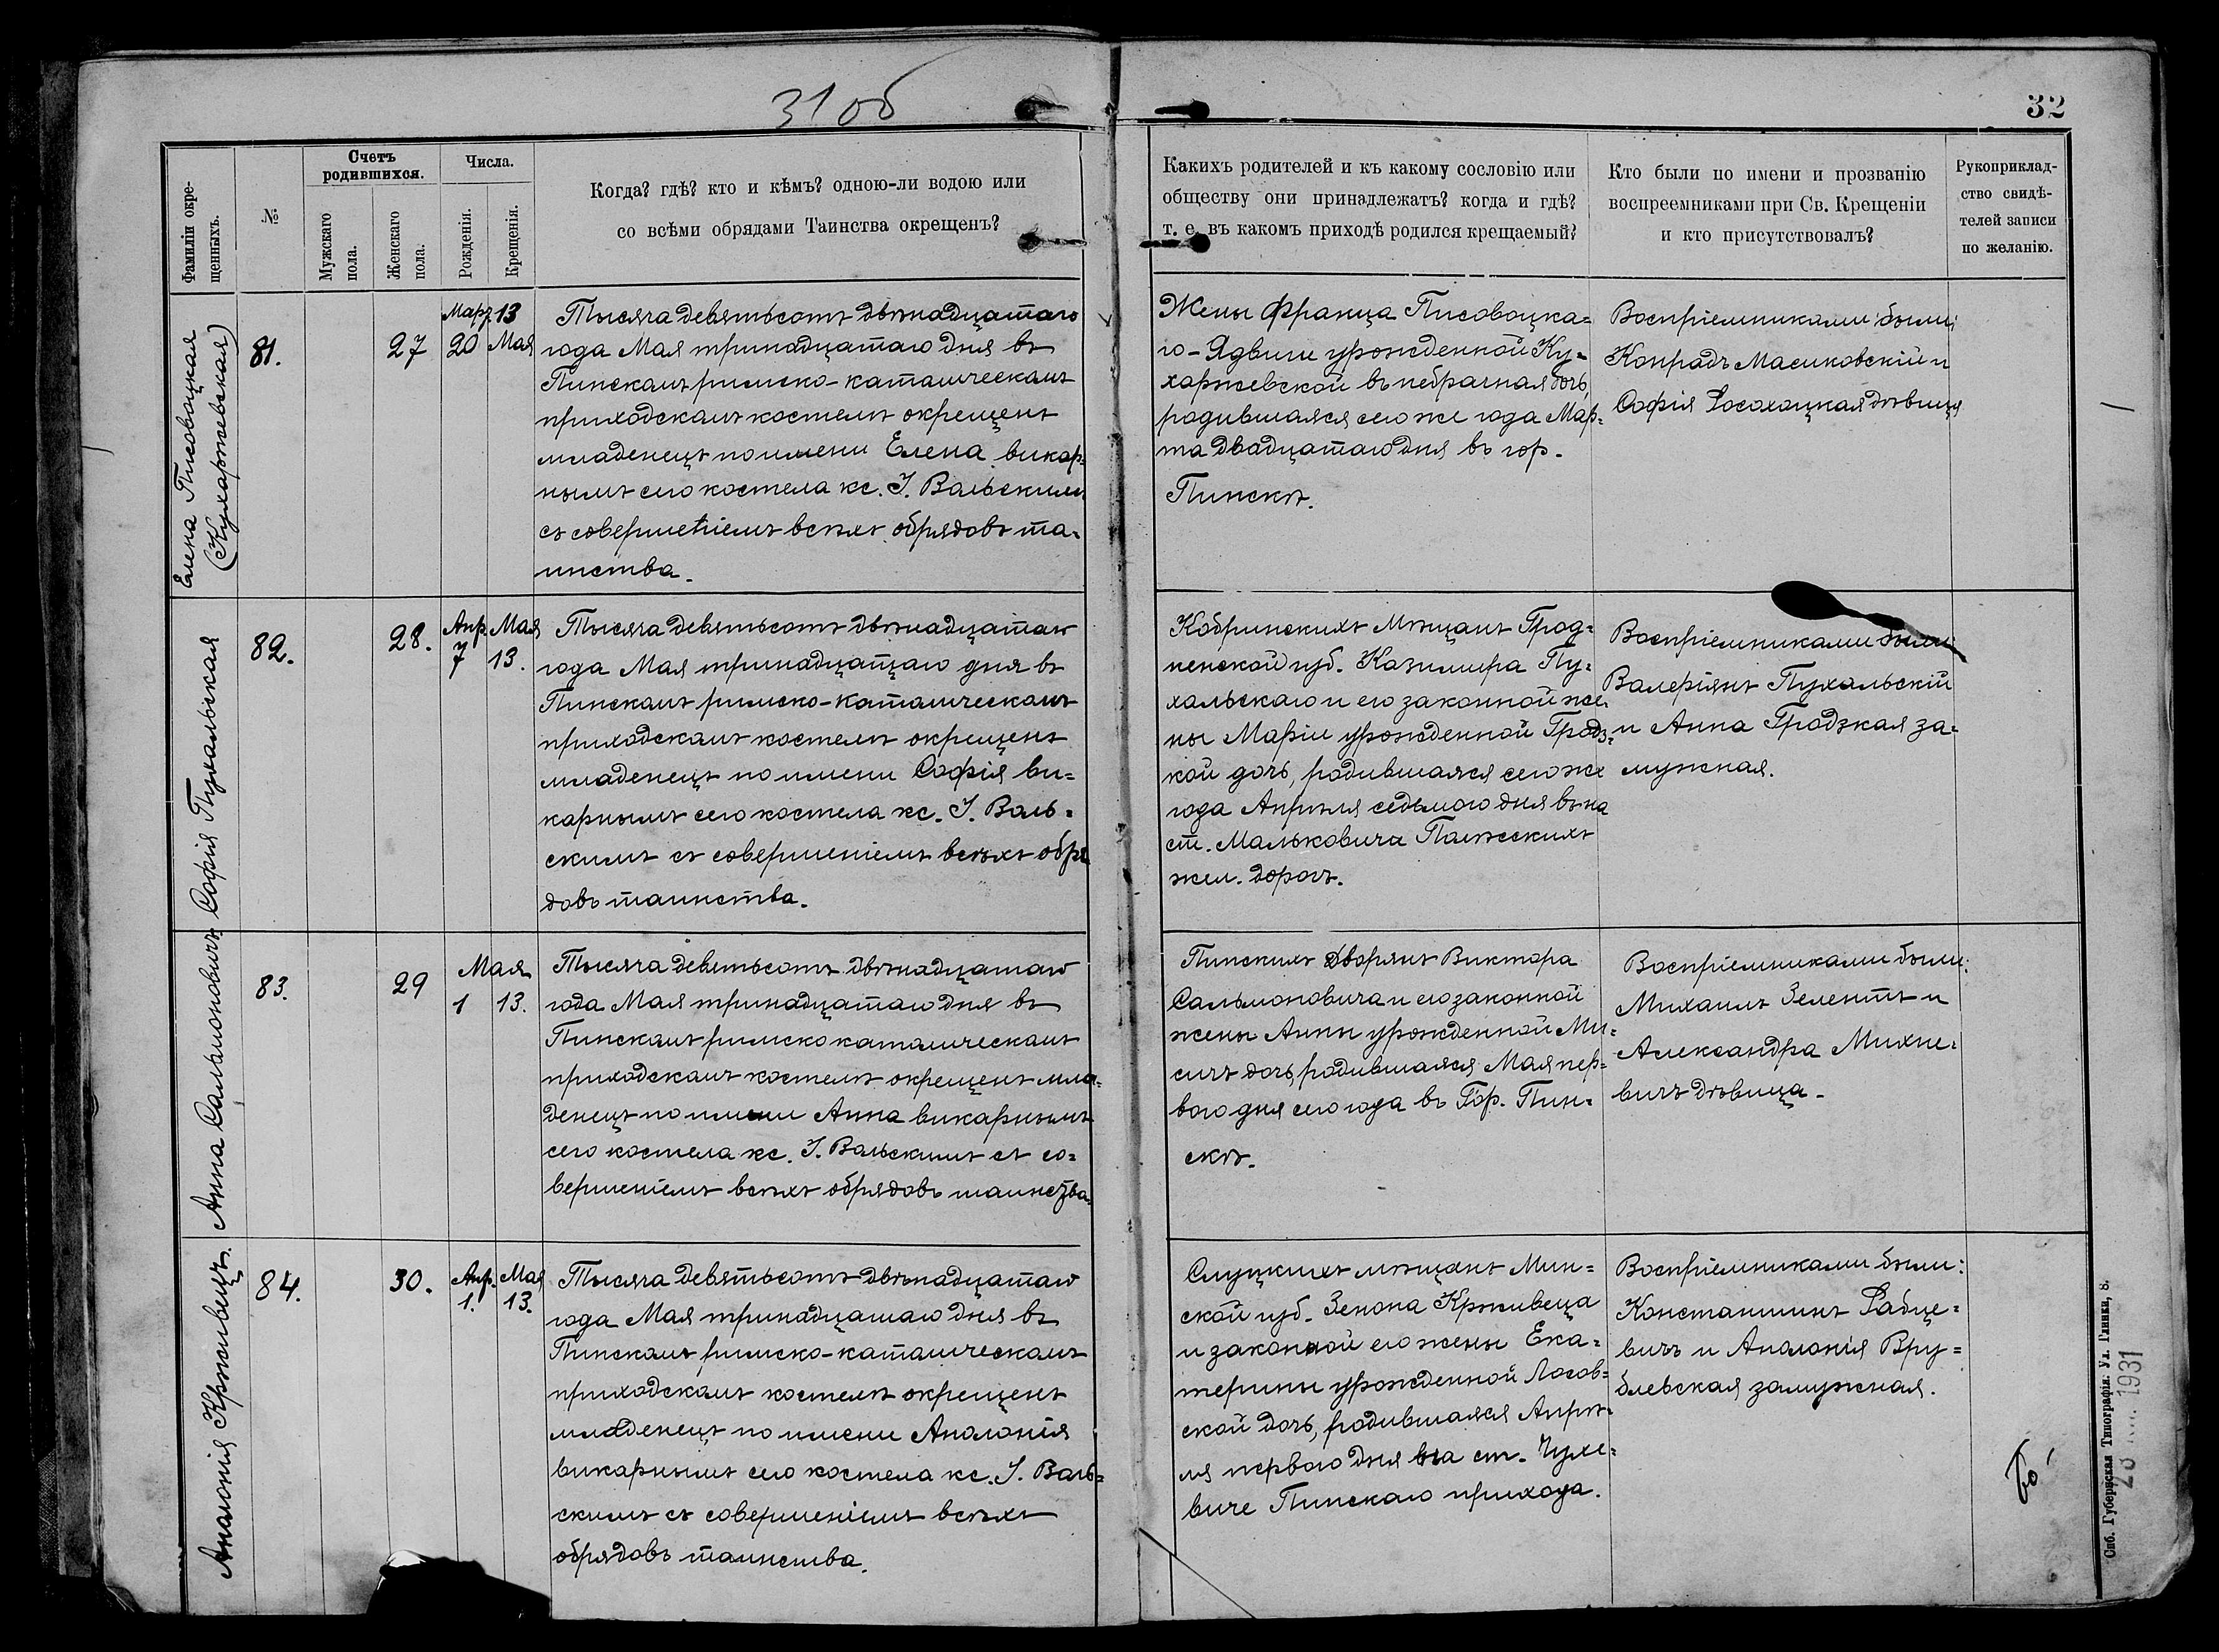 31 об
32
Фамиліи окре-
щенныхъ.
№
Счетъ
родившихся.
Мужскаго
пола.
Женскаго
пола.
Числа.
Рожденія.
Крещенія.
Когда? гдѣ? кто и кѣмъ? одною-ли водою или
со всѣми обрядами Таинства окрещенъ?
Какихъ родителей и къ какому сословію или
обществу они принадлежатъ? когда и гдѣ?
т. е. въ какомъ приходѣ родился крещаемый?
Кто были по имени и прозванію
воспреемниками при Св. Крещеніи
и кто присутствовалъ?
Рукоприклад-
ство свидѣ-
телей записи
по желанію.
Елена Писовоцкая
(Кухаржевская)
81.
27
Мар. 13
20 Мая
Тысяча девятьсотъ двѣнадцатаго
года Мая тринадцатаго дня въ
Пинскомъ римско-католическомъ
приходскомъ костелѣ окрещенъ
младенецъ по имени Елена викар-
нымъ сего костела кс. І. Вальскимъ
съ совершеніемъ всѣхъ обрядовъ та-
инства.
Жены Франца Писовоцка-
го - Ядвиги урожденной Ку-
харжевской внебрачная дочь,
родившаяся сего же года Мар-
та двадцатаго дня въ гор.
Пинскѣ.
Воспріемниками были:
Конрадъ Масиковскій и
Софія Росохацкая дѣвица
Софія Пухальская
82.
28.
Апр. Мая
7 13.
Тысяча девятьсотъ двѣнадцатаго
года Мая тринадцатаго дня въ
Пинскомъ римско-католическомъ
приходскомъ костелѣ окрещенъ
младенецъ по имени Софія ви-
карнымъ сего костела кс. І. Валь-
скимъ съ совершеніемъ всѣхъ обря
довъ таинства.
Кобринскихъ мѣщанъ Грод-
ненской губ. Казимира Пу-
хальскаго и его законной же-
ны Маріи урожденной Гродз-
кой дочь, родившаяся сего же
года Апрѣля седьмого дня на
ст. Мальковичи Полѣсскихъ
жел. дорогъ.
Воспріемниками были
Валеріянъ Пухальскій
и Анна Гродзкая за-
мужная.
Анна Сальмоновичъ
83.
29
Мая
1 13.
Тысяча девятьсотъ двѣнадцатаго
года Мая тринадцатаго дня въ
Пинскомъ римско католическомъ
приходскомъ костелѣ окрещенъ мла-
денецъ по имени Анна викарнымъ
сего костела кс. І. Вальскимъ съ со-
вершеніемъ всѣхъ обрядовъ таинства.
Пинскихъ дворянъ Виктора
Сальмоновича и его законной
жены Анны урожденной Ми-
сичъ дочь, родившаяся Мая пер-
вого дня сего года въ Гор. Пин-
скѣ.
Воспріемниками были:
Михаилъ Зелентъ и
Александра Михне-
вичъ дѣвица.
Аполонія Крживецъ.
84.
30.
Апр. Мая
1. 13.
Тысяча девятьсотъ двѣнадцатаго
года Мая тринадцатаго дня въ
Пинскомъ римско-католическомъ
приходскомъ костелѣ окрещенъ
младенецъ по имени Аполонія
викарнымъ сего костела кс. І. Валь-
скимъ съ совершеніемъ всѣхъ
обрядовъ таинства.
Слуцкихъ мѣщанъ Мин-
ской губ. Зенона Крживеца
и законной его жены Ека-
терины урожденной Лосов-
ской дочь, родившаяся Апрѣ-
ля перваго дня на ст. Чухе-
вичи Пинскаго прихода.
Воспріемниками были:
Константинъ Рабце-
вичъ и Аполонія Вру-
блевская замужная.
Спб. Губернская Типографія. Ул. Глинки, 8.
1931